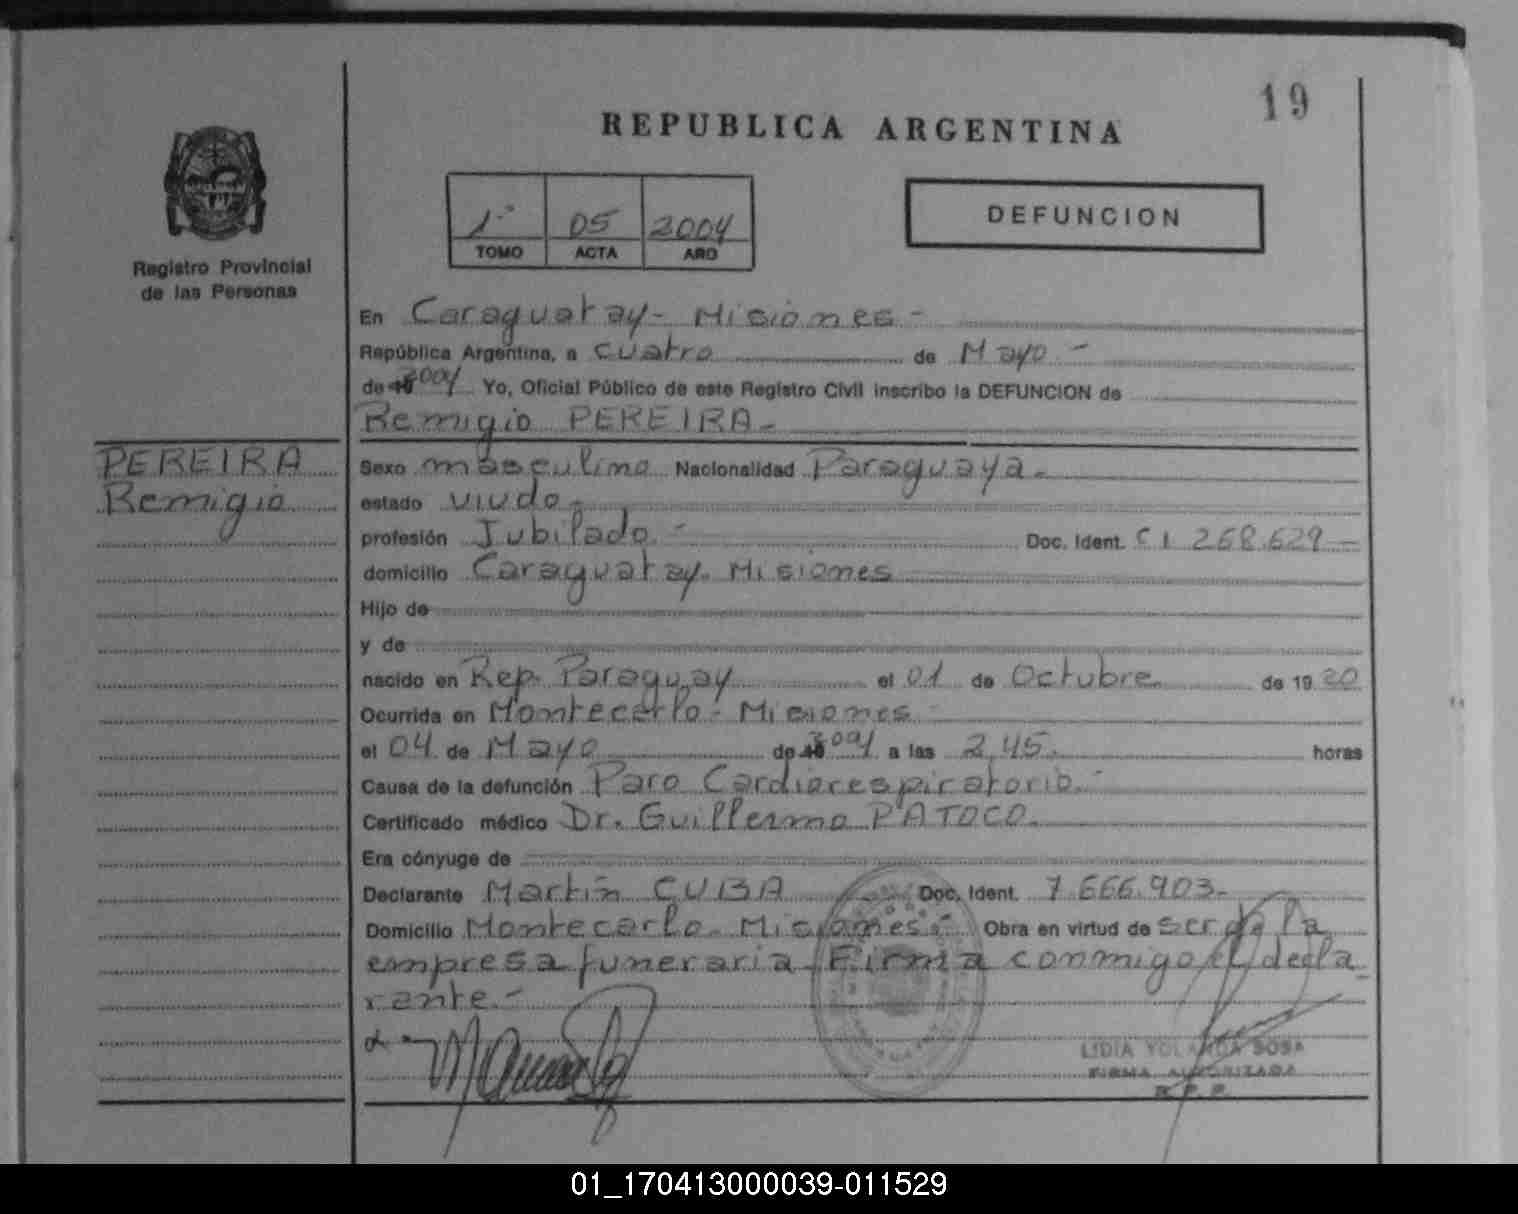 19
REPUBLICA ARGENTINA
1º 05 2004
TOMO ACTA AÑO
DEFUNCION
Registro Provincial
de las Personas
En Caraguatay - Misiones -
República Argentina, a cuatro de Mayo -
de 19 2004 Yo, Oficial Público de este Registro Civil inscribo la DEFUNCION de
Remigio PEREIRA -
PEREIRA
Remigio
Sexo masculino Nacionalidad Paraguaya -
estado viudo -
profesión Jubilado - Doc. Ident. C I 268.629 -
domicilio Caraguatay. Misiones
Hijo de
y de
nacido en Rep. Paraguay el 01 de Octubre de 1920
Ocurrida en Montecarlo - Misiones -
el 04 de Mayo de 19 2004 a las 2,45. horas
Causa de la defunción Paro Cardiorespiratorio. -
Certificado médico Dr. Guillermo PATOCO.
Era cónyuge de
Declarante Martín CUBA Doc. Ident. 7.666.903 -
Domicilio Montecarlo - Misiones - Obra en virtud de ser de la
empresa funeraria. Firma conmigo el decla
rante. -
LIDIA YOLANDA SOSA
FIRMA AUTORIZADA
R. P. P.
01_170413000039-011529